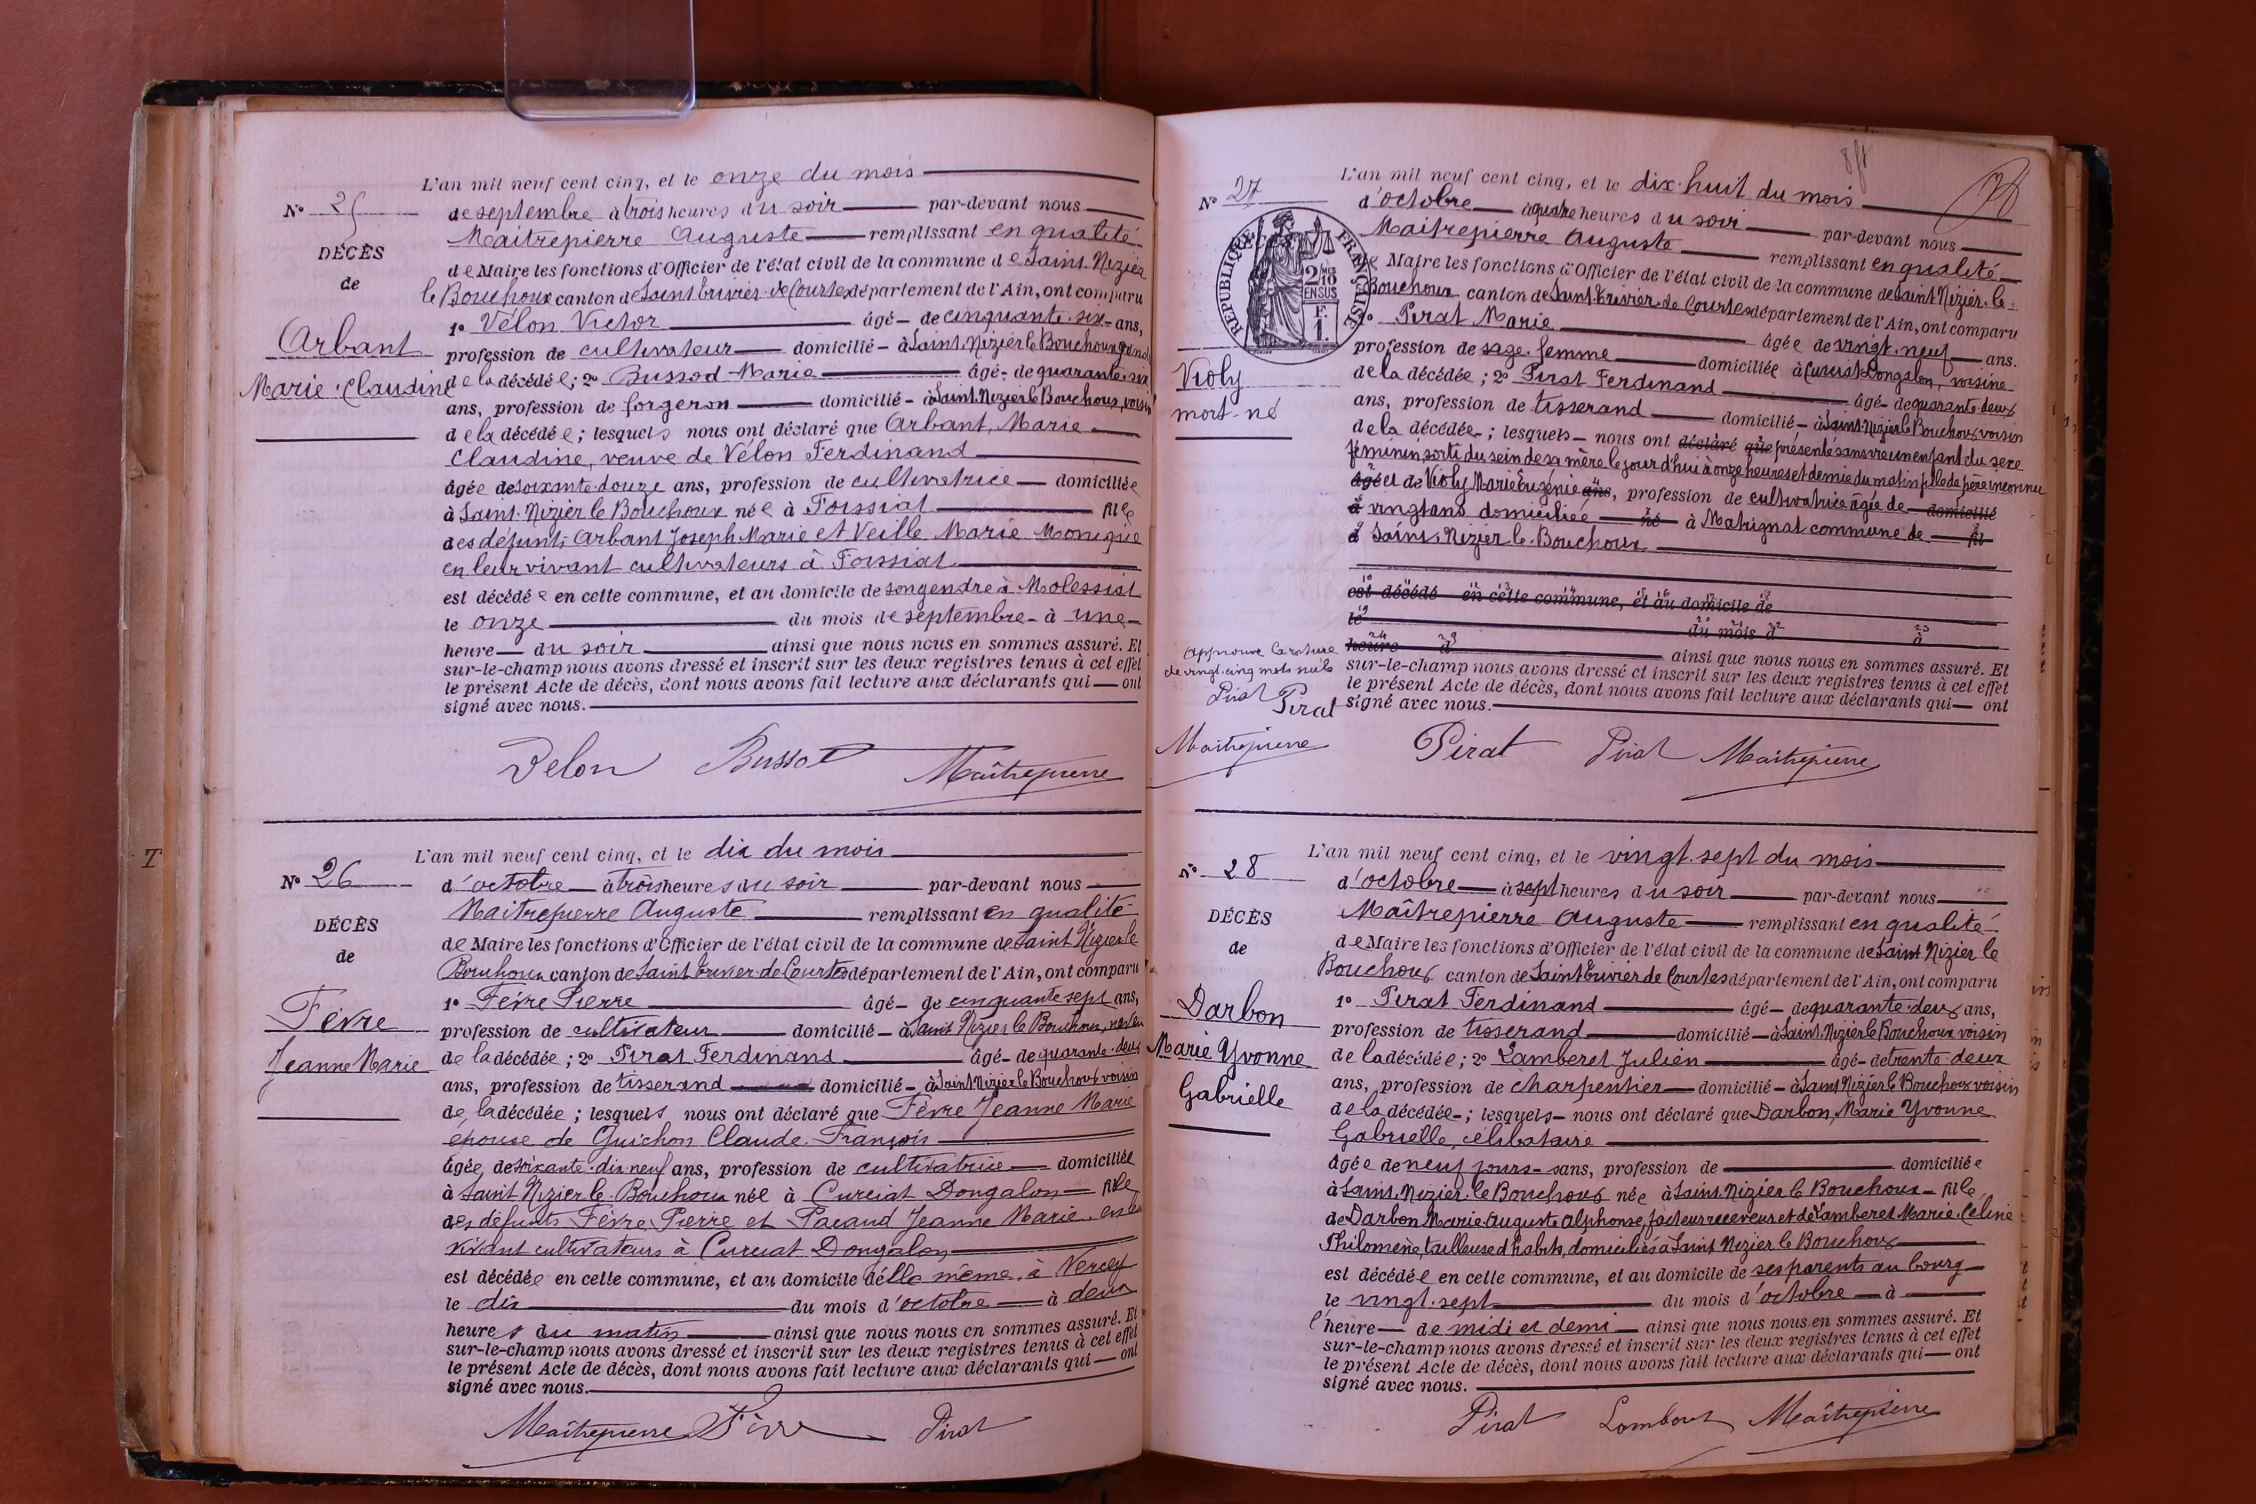 L'an mil neuf cent cinq, et le onze du mois
N° 25
de septembre à trois heures du soir par-devant nous
Maitrepierre Auguste remplissant en qualité
DÉCÈS
de Maire les fonctions d'Officier de l'état civil de la commune de Saint-Nizier
de
le Bouchoux canton de Saint Trivier-de Courtes département de l'Ain, ont comparu
1° Vélon Victor âgé de cinquante-six ans,
Arbant
profession de cultivateur domicilié à Saint-Nizier le Bouchoux, gendre
Marie-Claudine
de la décédée; 2° Bussod Marie âgé de quarante-six
ans, profession de forgeron domicilié à Saint-Nizier le Bouchoux, voisin
de la décédée; lesquels nous ont déclaré que Arbant, Marie
Claudine, veuve de Vélon Ferdinand
âgée de soixante-douze ans, profession de cultivatrice domiciliée
à Saint-Nizier le Bouchoux née à Foissiat fille
des défunts Arbant Joseph Marie et Veille Marie Monique
en leur vivant cultivateurs à Foissiat
est décédée en cette commune, et au domicile de son gendre à Molessiat
le onze du mois de septembre à une
heure du soir ainsi que nous nous en sommes assuré. Et
sur-le-champ nous avons dressé et inscrit sur les deux registres tenus à cet effet
le présent Acte de décès, dont nous avons fait lecture aux déclarants qui ont
signé avec nous.
Velon Bussod Maîtrepierre
L'an mil neuf cent cinq, et le dix du mois
N° 26
d'octobre à trois heures du soir par-devant nous
Maitrepierre Auguste remplissant en qualité
DÉCÈS
de Maire les fonctions d'Officier de l'état civil de la commune de Saint Nizier le
de
Bouchoux canton de Saint Trivier-de Courtes département de l'Ain, ont comparu
1° Fèvre Pierre âgé de cinquante sept ans,
Fèvre
profession de cultivateur domicilié à Saint Nizier le Bouchoux, neveu
Jeanne Marie
de la décédée; 2° Pirat Ferdinand âgé de quarante-deux
ans, profession de tisserand domicilié à Saint Nizier le Bouchoux voisin
de la décédée; lesquels nous ont déclaré que Fèvre Jeanne Marie
épouse de Guichon Claude-François
âgée de soixante-dix-neuf ans, profession de cultivatrice domiciliée
à Saint Nizier le Bouchoux née à Curciat Dongalon fille
des défunts Fèvre Pierre et Pacaud Jeanne Marie, en leur
vivant cultivateurs à Curciat Dongalon
est décédée en cette commune, et au domicile d'elle même, à Vercey
le dix du mois d'octobre à deux
heures du matin ainsi que nous nous en sommes assuré. Et
sur-le-champ nous avons dressé et inscrit sur les deux registres tenus à cet effet
le présent Acte de décès, dont nous avons fait lecture aux déclarants qui ont
signé avec nous.
Maîtrepierre Fèvre Pirat
T
L'an mil neuf cent cinq, et le dix-huit du mois
N° 27
d'octobre à quatre heures du soir par-devant nous
Maitrepierre Auguste remplissant en qualité
RÉPUBLIQUE FRANÇAISE
2/10 EN SUS
F. 1.
de Maire les fonctions d'Officier de l'état civil de la commune de Saint Nizier-le-
Bouchoux canton de Saint-Trivier-de Courtes département de l'Ain, ont comparu
1° Pirat Marie âgée de vingt-neuf ans.
profession de sage-femme domiciliée à Curciat-Dongalon, voisine
Violy
de la décédée; 2° Pirat Ferdinand âgé de quarante-deux
mort-né
ans, profession de tisserand domicilié à Saint-Nizier le Bouchoux voisin
de la décédée; lesquels nous ont déclaré que présenté sans vie un enfant du sexe
féminin, sorti du sein de sa mère le jour d'hui à onze heures et demie du matin fille de père inconnu
âgé et de Violy Marie Eugénie ans, profession de cultivatrice âgée de domicilié
à vingt ans domiciliée né à Matrignat commune de fil
d Saint-Nizier le-Bouchoux
est décédé en cette commune, et au domicile de
le du mois d à
heure d ainsi que nous nous en sommes assuré. Et
sur-le-champ nous avons dressé et inscrit sur les deux registres tenus à cet effet
le présent Acte de décès, dont nous avons fait lecture aux déclarants qui ont
signé avec nous.
Approuvé la rature
de vingt-cinq mots nuls
Pirat Pirat
Maîtrepierre
Pirat Pirat Maîtrepierre
L'an mil neuf cent cinq, et le vingt-sept du mois
N° 28
d'octobre à sept heures du soir par-devant nous
Maîtrepierre Auguste remplissant en qualité
DÉCÈS
de Maire les fonctions d'Officier de l'état civil de la commune de Saint Nizier le
de
Bouchoux canton de Saint Trivier de Courtes département de l'Ain, ont comparu
1° Pirat Ferdinand âgé de quarante-deux ans,
Darbon
profession de tisserand domicilié à Saint-Nizier le Bouchoux voisin
Marie Yvonne
de la décédée; 2° Lamberet Julien âgé de trente-deux
Gabrielle
ans, profession de charpentier domicilié à Saint Nizier le Bouchoux voisin
de la décédée; lesquels nous ont déclaré que Darbon, Marie Yvonne
Gabrielle, célibataire
âgée de neuf jours ans, profession de domiciliée
à Saint-Nizier-le Bouchoux née à Saint-Nizier le Bouchoux fille
de Darbon Marie-Auguste Alphonse, facteur receveur et de Lamberet Marie-Céline
Philomène, tailleuse d'habits, domiciliés à Saint Nizier le Bouchoux
est décédée en cette commune, et au domicile de ses parents au bourg
le vingt-sept du mois d'octobre à
l'heure de midi et demi ainsi que nous nous en sommes assuré. Et
sur-le-champ nous avons dressé et inscrit sur les deux registres tenus à cet effet
le présent Acte de décès, dont nous avons fait lecture aux déclarants qui ont
signé avec nous.
Pirat Lamberet Maîtrepierre